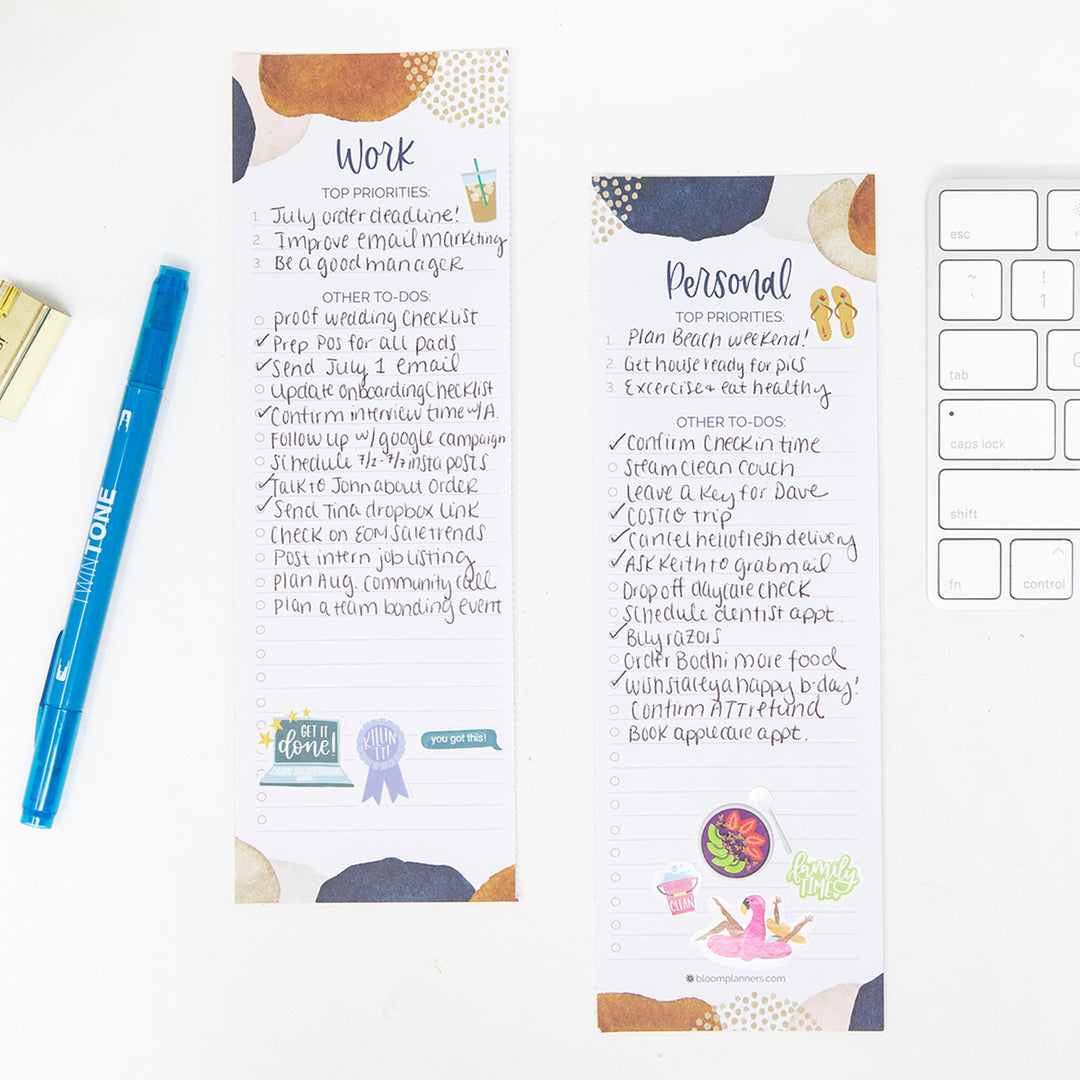 Work
TOP PRIORITIES:
1. July order deadline!
2. Improve email marketing
3. Be a good manager
OTHER TO-DOS:
proof wedding checklist
Prep POs for all pads
Send July 1 email
Update onboarding checklist
Confirm interview time w/A.
Follow up w/ google campaign
Schedule 7/2-7/7 insta posts
Talk to John about order
Send Tina dropbox link
Check on EOM sale trends
Post intern job listing
Plan Aug. community call
Plan a team bonding event
GET IT
done!
KILLIN'
IT!
you got this!
Personal
TOP PRIORITIES:
1. Plan Beach weekend!
2. Get house ready for pics
3. Excercise + eat healthy
OTHER TO-DOS:
Confirm check in time
Steam clean couch
Leave a key for Dave
COSTCO trip
Cancel hellofresh delivery
ASK Keith to grab mail
Drop off daycare check
Schedule dentist appt.
Buy razors
Order Bodhi more food
Wish Stateya happy b-day!
Confirm ATT refund
Book applecare appt.
family
TIME
CLEAN
bloomplanners.com
TWINTONE
esc
~
`
!
1
tab
caps lock
shift
fn
control